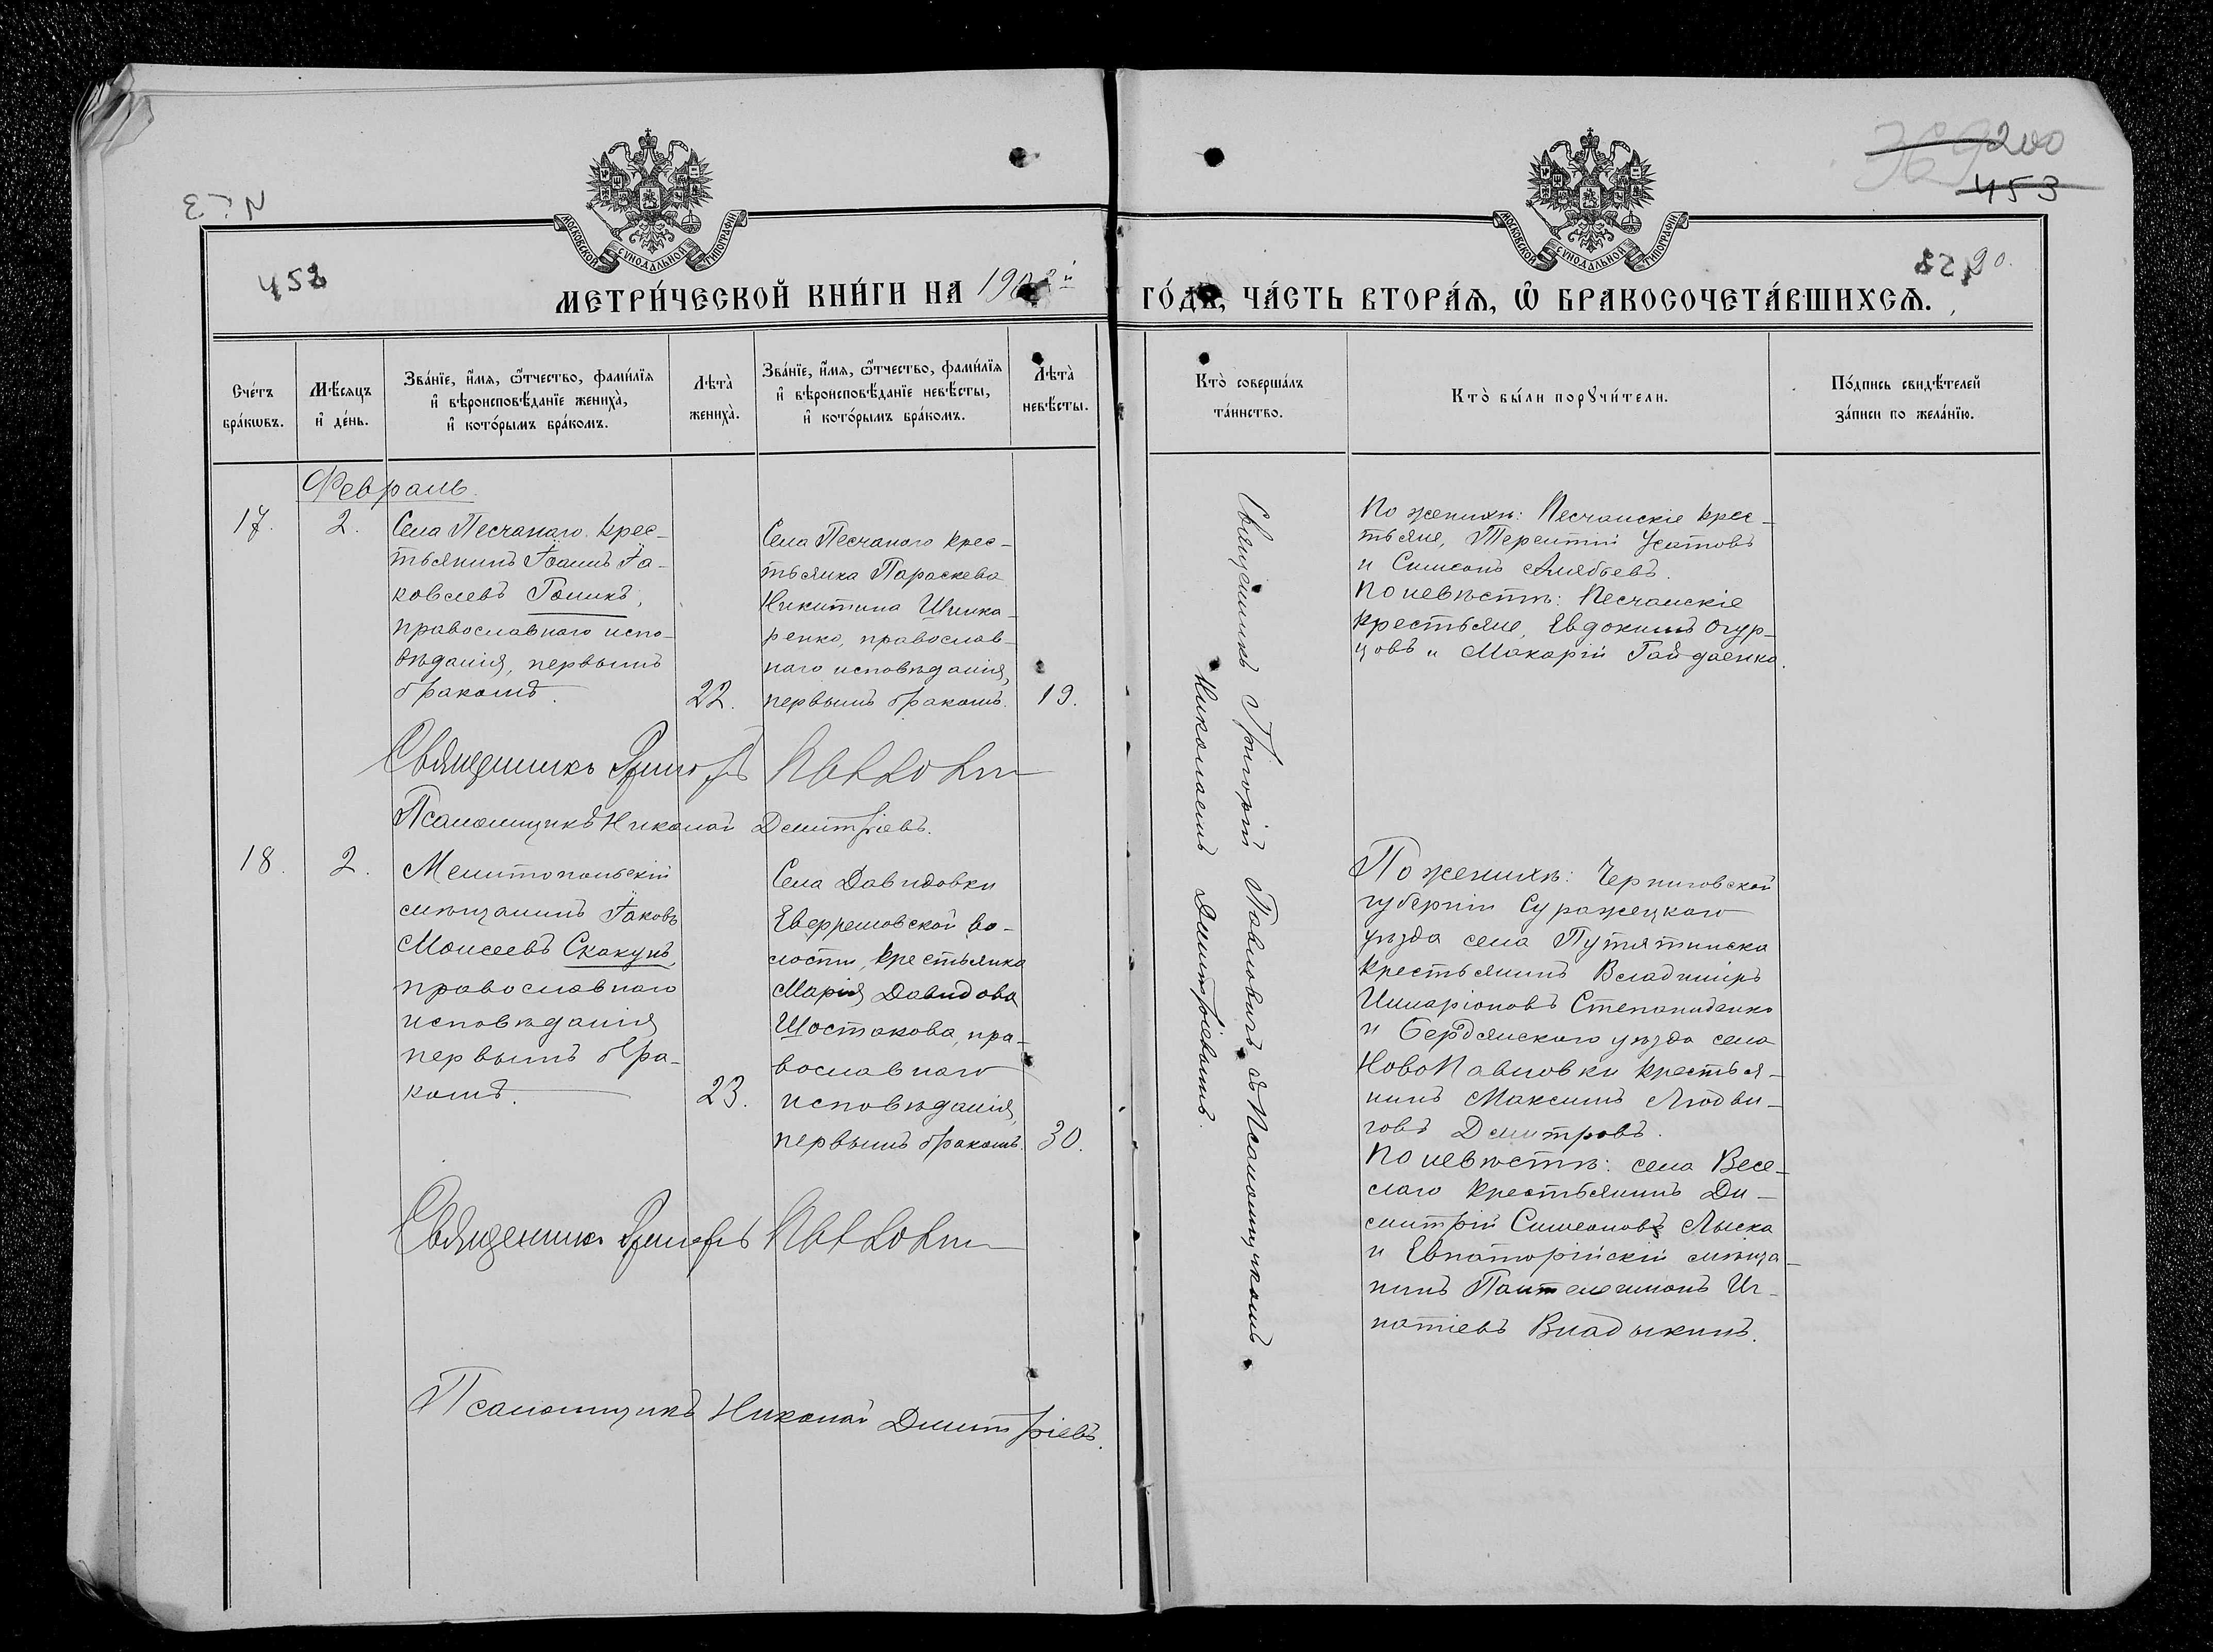 200
453
458
90.
МОСКОВСКОЙ СѴНОДАЛЬНОЙ ТИПОГРАФІИ
МОСКОВСКОЙ СѴНОДАЛЬНОЙ ТИПОГРАФІИ
МЕТРИ́ЧЕСКОЙ КНИ́ГИ НА
ГО́ДЪ, ЧА́СТЬ ВТОРА́Я, Ѡ҆ БРАКОСОЧЕТА́ВШИХСѦ.
Сче́тъ
бра́кѡвъ.
Мѣ́сяцъ
и҆ де́нь.
Зва́нїе, и҆́мѧ, ѻ҆́тчество, фами́лїѧ
и҆ вѣроисповѣ́данїе жениха̀,
и҆ кото́рымъ бра́комъ.
Лѣта̀
жениха̀.
Зва́нїе, и҆́мѧ, ѻ҆́тчество, фами́лїѧ
и҆ вѣроисповѣ́данїе невѣ́сты,
и҆ кото́рымъ бра́комъ.
Лѣта̀
невѣ́сты.
Кто̀ соверша́лъ
та́инство.
Кто̀ бы́ли порꙋчи́тели.
По́дпись свидѣ́телей
за́писи по жела́нїю.
Февраль.
17.
2.
Села Песчанаго крес-
тьянинъ Іоаннъ Іа-
ковлевъ Голикъ,
православнаго испо-
вѣданія, первымъ
бракомъ.
22.
Села Песчанаго крес-
тьянка Параскева
Никитина Шинка-
ренко, православ-
наго исповѣданія,
первымъ бракомъ.
19.
Священникъ Григорій Павловичъ съ Псаломщикомъ
Николаемъ Дмитріевымъ.
По женихѣ: Песчанскіе крес-
тьяне, Терентій Усатовъ
и Симеонъ Алябьевъ.
По невѣстѣ: Песчанскіе
крестьяне, Евдокимъ Огур-
цовъ и Макарій Гайдаенко.
Священникъ
Псаломщикъ Николай Дмитріевъ.
18.
2.
Мелитопольскій
мѣщанинъ Іаковъ
Моисеевъ Скакунъ,
православнаго
исповѣданія
первымъ бра-
комъ.
23.
Села Давидовки
Ефремовской во-
лости, крестьянка
Марія Давидова
Шостакова, пра-
вославнаго
исповѣданія,
первымъ бракомъ.
30.
По женихѣ: Черниговской
губерніи Суражецкаго
уѣзда села Путятинска
крестьянинъ Владиміръ
Илларіоновъ Степаниденко
и Бердянскаго уѣзда села
НовоПавловки крестья-
нинъ Максимъ Людви-
говъ Дмитровъ.
По невѣстѣ: села Весе-
лаго крестьянинъ Ди-
митрій Симеоновъ Лыска
и Евпаторійскій мѣща-
нинъ Пантелеимонъ Иг-
натіевъ Владыкинъ.
Священникъ
Псаломщикъ Николай Дмитріевъ.